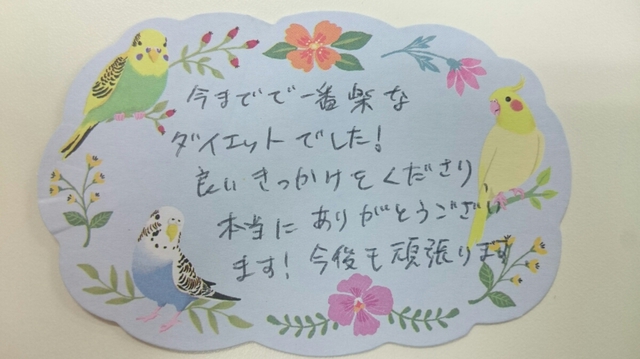 今までで一番楽な
ダイエットでした!
良いきっかけをくださり、
本当にありがとうござい
ます! 今後も頑張ります